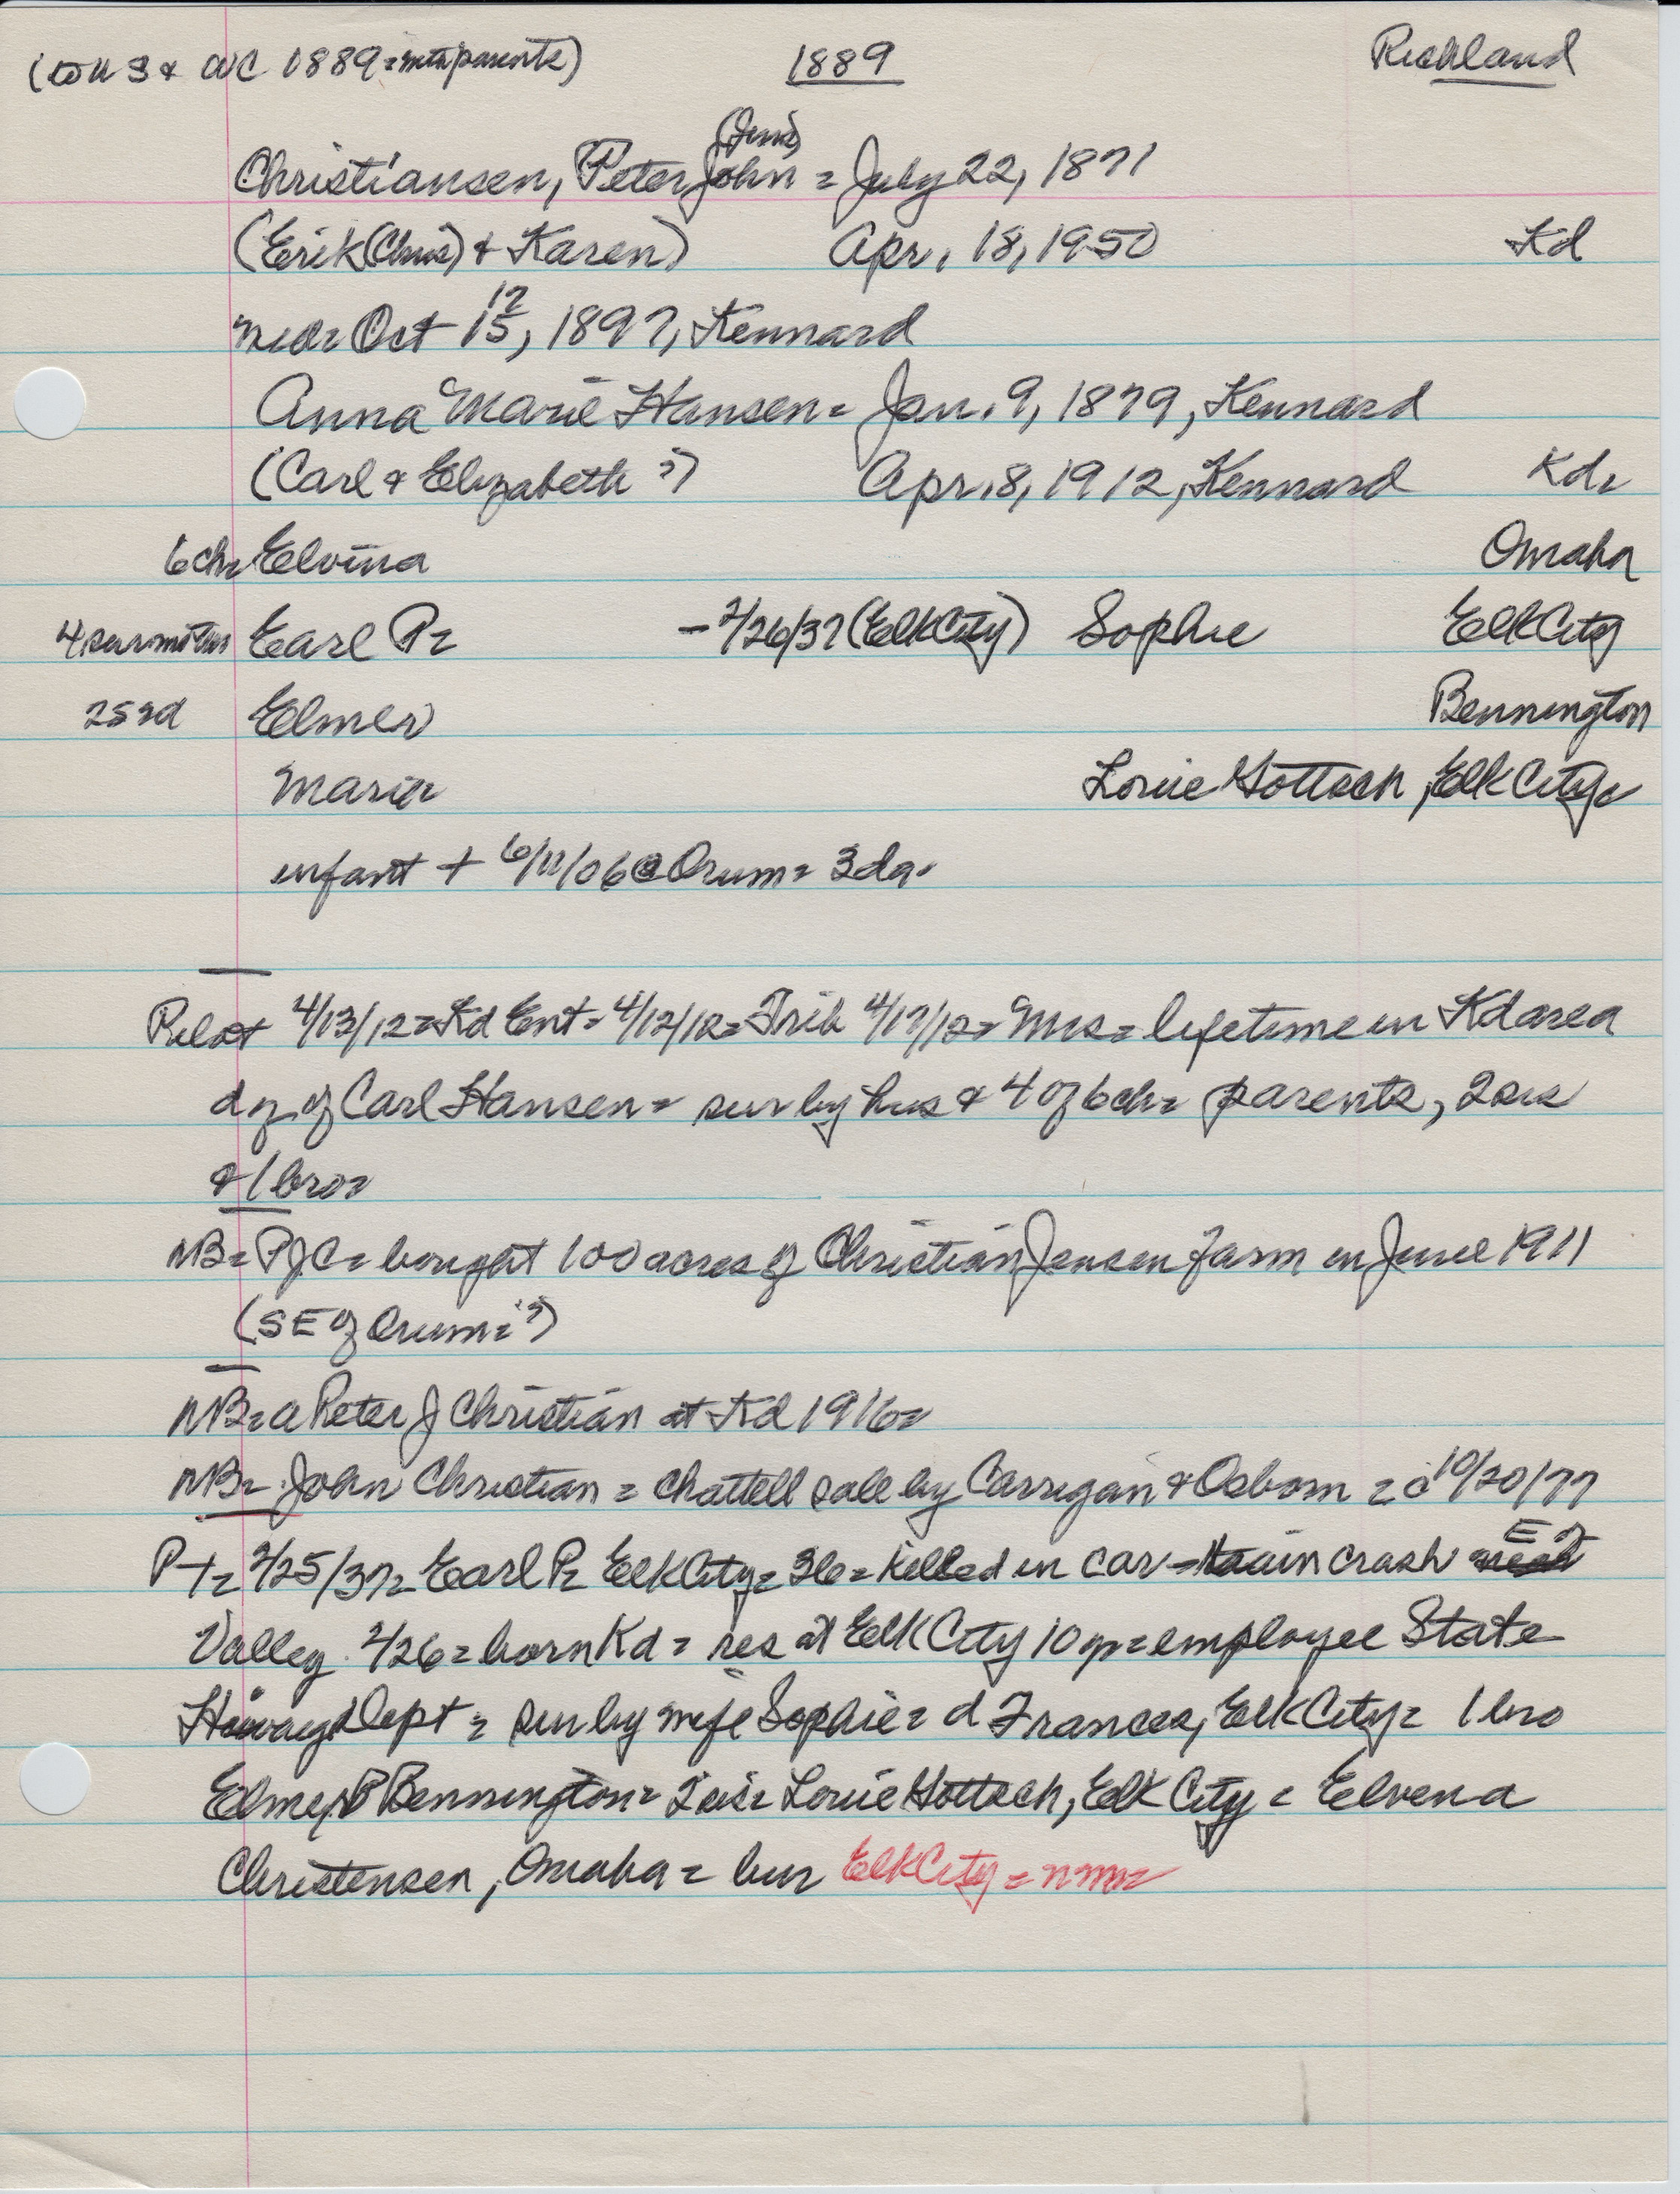 (to U S & WC 1889 = with parents) 1889 Richland
(Jens)
Christiansen, Peter John = July 22, 1871
(Erik (Chris) & Karen) Apr. 18, 1950 Kd
12
md = Oct 15, 1897, Kennard
Anna Marie Hansen = Jan. 9, 1879, Kennard
(Carl & Elizabeth ?) Apr. 8, 1912, Kennard Kd =
6 ch = Elvina Omaha
4 sur mother Earl P = - 2/26/37 (Elk City) Sophie Elk City
2 s 2 d Elmer Bennington
Marie = Louie Hottsch, Elk City =
infant + 6/11/06 @ Orum = 3 da.
Pilot 4/13/12 = Kd Ent = 4/12/12 = Trib 4/17/12 = Mrs = lifetime in Kd area
dg. of Carl Hansen = sur by hus & 4 of 6 ch = parents, 2 sis
& 1 bro =
NB = PJC = bought 100 acres of Christian Jensen farm in June 1911
(SE of Orum = ?)
NB = a Peter J Christian at Kd 1916 =
NB = John Christian = chattell sale by Carrigan & Osborn = c 10/20/77
P-T = 2/25/37 = Earl P = Elk City = 36 = killed in car - train crash E of
Valley. 2/26 = born Kd = res at Elk City 10 yr = employee State
Hiway Dept = sur by wife Sophie = d Frances, Elk City = 1 bro
Elmer, Bennington = 2 sis = Louie Hottsch, Elk City = Elvena
Christensen, Omaha = bur Elk City = nmn =